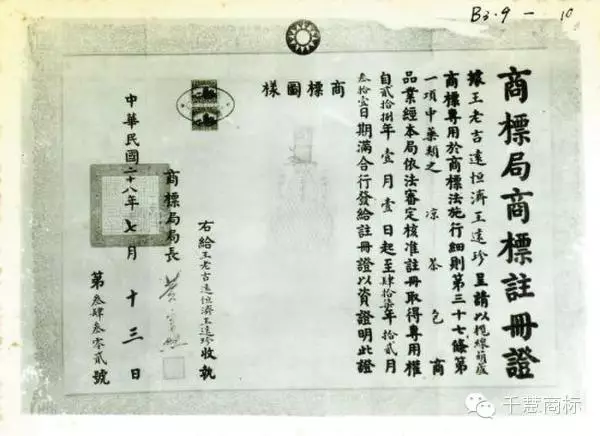 B3.9 - 10
商標局商標註冊證
據王老吉遠恒濟王遠珍呈請以
商標專用於商標法施行細則第三十七條第
一項中藥類之涼茶包商
品業經本局依法審定核准註冊取得專用權
自貳拾捌年壹月壹日起至肆拾柒年拾貳月
叁拾壹日期滿合行發給註冊證以資證明此證
商標圖樣
右給王老吉遠恒濟王遠珍收執
商標局局長
中華民國二十八年七月十三日
第叁肆叁零貳號
千慧商标